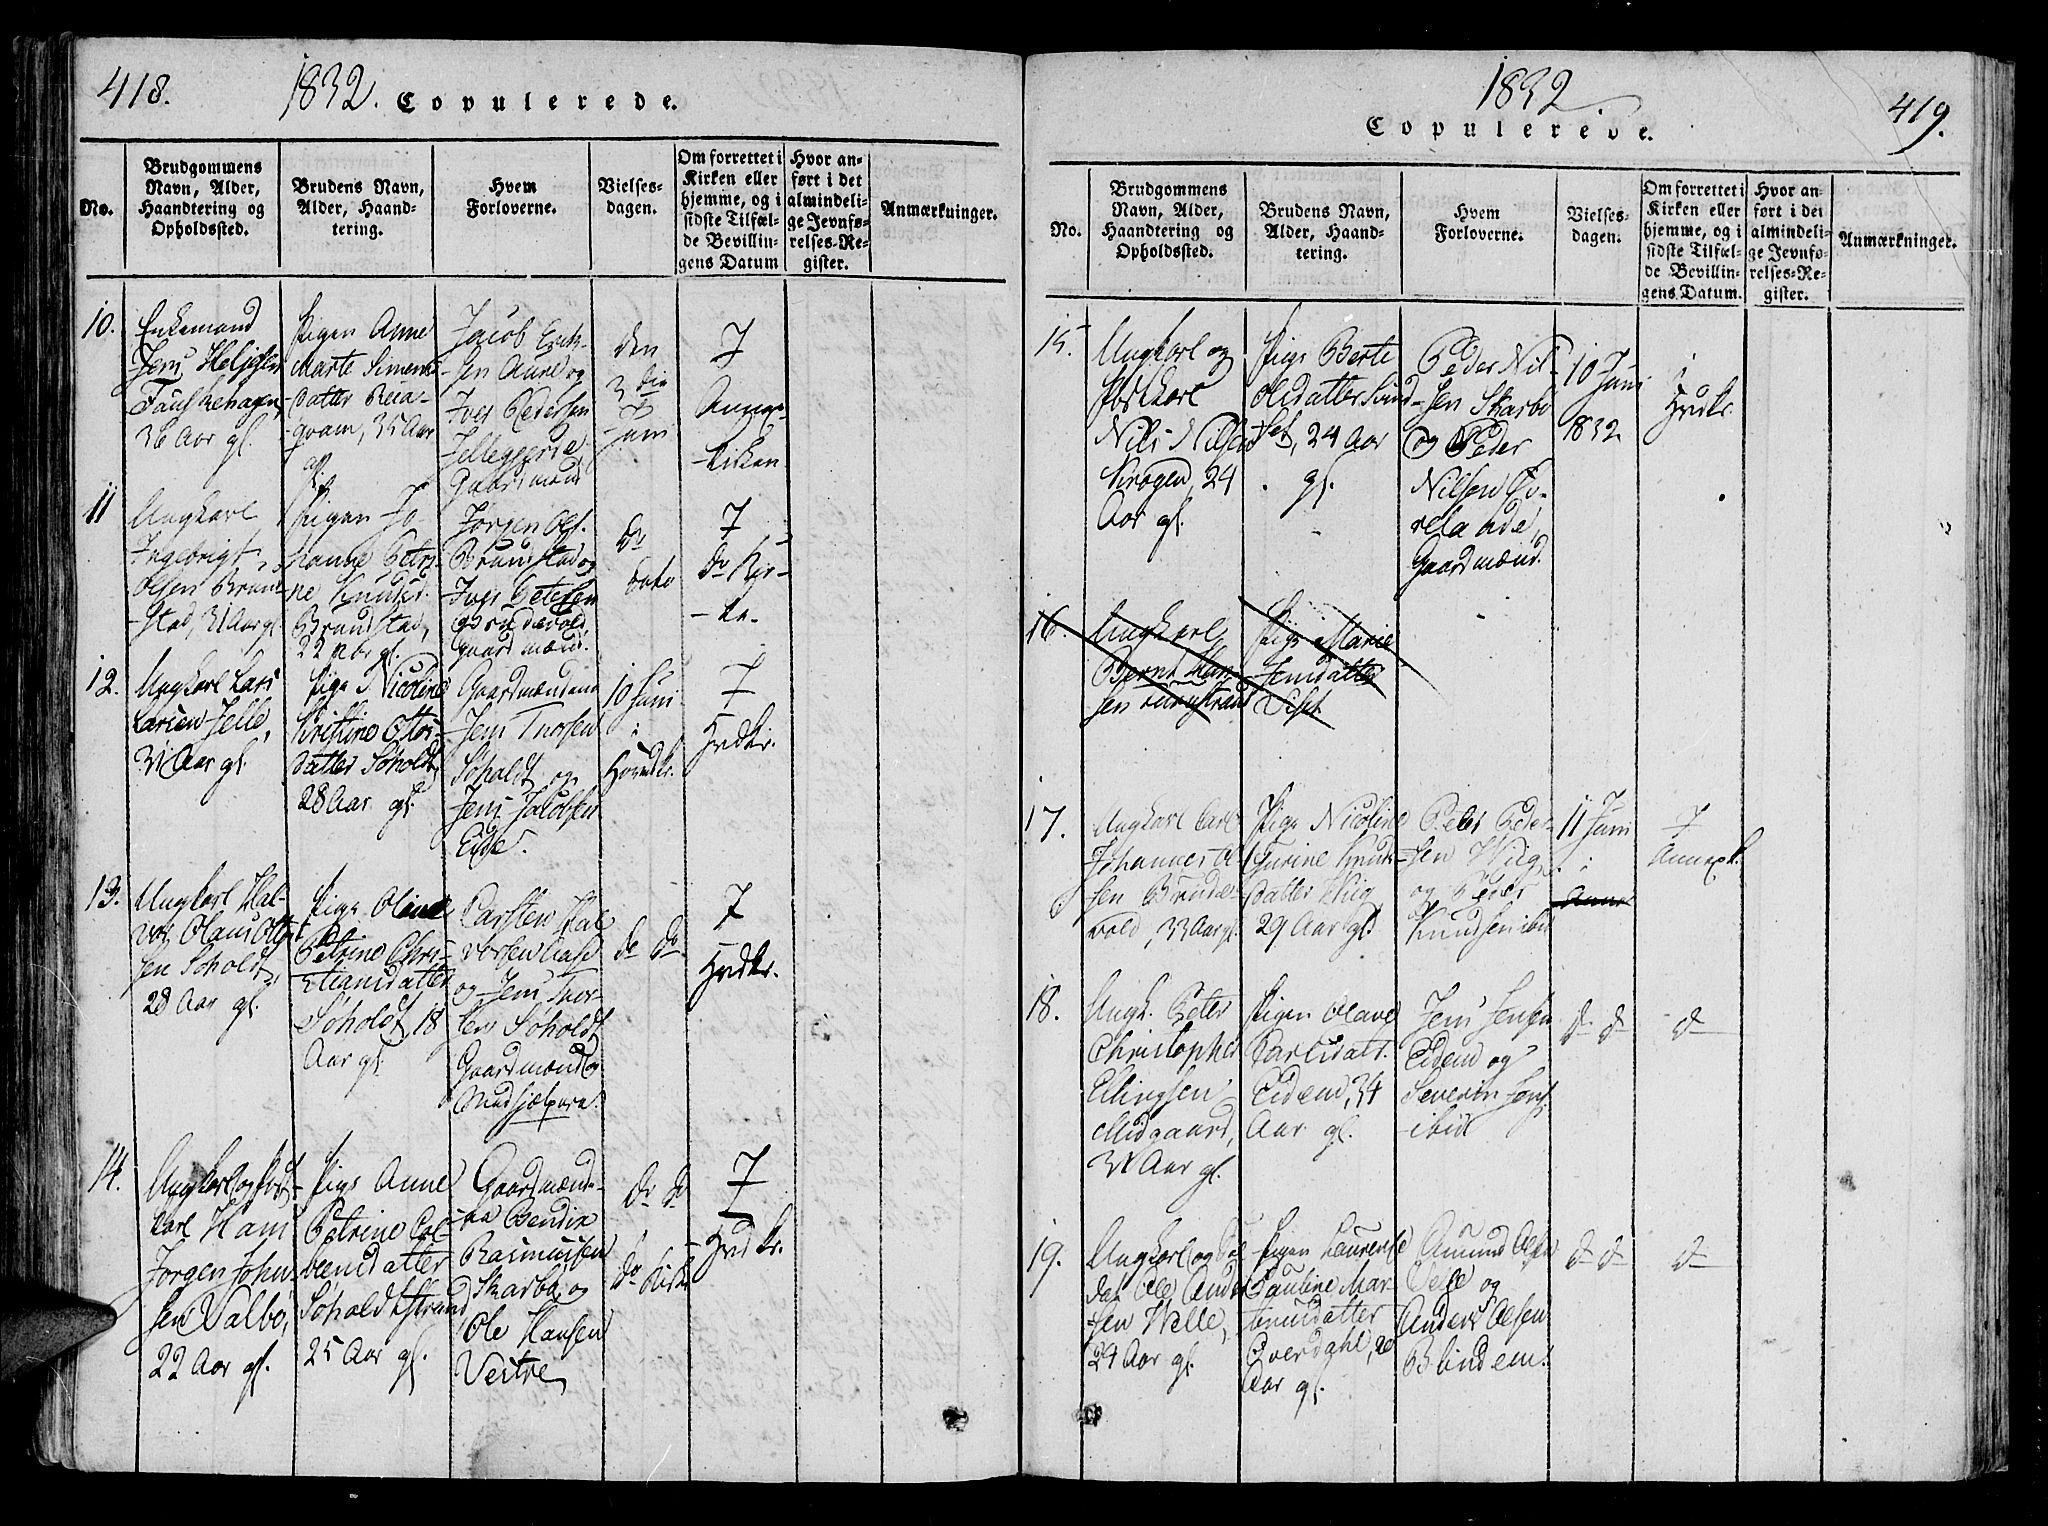 418.
1832. Copulerede.
No.
Brudgommens
Navn, Alder,
Haandtering og
Opholdssted.
Brudens Navn,
Alder, Haand-
tering.
Hvem
Forloverne.
Vielses-
dagen.
Om forrettet i
Kirken eller
hjemme, og i
sidste Tilfæl-
de Bevillin-
gens Datum
Hvor an-
ført i det
almindeli-
ge Jevnfø-
relses-Re-
gister.
Anmærkninger.
10.
Enkemand
Jens
36 Aar gl.
Pigen Anne
Marte Simens
datter
35 Aar
gl.
Jacob Erik-
sen Aure og
Iver Pedersen
Gaardmænd
den
3die
Juni
7
Annex-
kirken
11
Ungkarl
Ingebrigt
Olsen Brun-
stad, 31 Aar gl.
Pigen Jo
hanne Petri-
ne Knudsd.
Brunstad,
22 Aar gl.
Jørgen Ols.
Brunstad og
Iver Petersen
gaardmænd.
do
dato
7
do Kir-
ke
12.
Ungkarl Lars
Larsen Jelle,
31 Aar gl.
Pige Nicoline
Kristine Ottos-
datter Søholdt
28 Aar gl.
Gaardmændene
Jens Thorsen
Søholdt og
Jens Jacobsen
Eide.
10 Juni
i
Hovedkr.
7
Hvdkr.
13.
Ungkarl Hal-
vor Olaus Otto-
sen Søholdt,
28 Aar gl.
Pige Oline
Petrine Chri-
stiansdatter
Søholdt 18
Aar gl.
Carsten Hal
vorsen Aase
og Jens Thor-
sen Søholdt
Gaardmænd og
Medhjælpere.
do do
7
Hvdkr.
14.
Ungkarl og Post-
karl Hans
Jørgen John-
sen Valbø,
22 Aar gl.
Pige Anne
Petrine Col-
beensdatter
Søholdtstrand
25 Aar gl.
Gaardmænde-
ne Bendix
Rasmussen
Skarbø og
Ole Hansen
Vestre
do do
i
do Kirke
7
Hvdkr.
1832
419.
Copulerede.
No.
Brudgommens
Navn, Alder,
Haandtering og
Opholdssted.
Brudens Navn,
Alder, Haand-
tering.
Hvem
Forloverne.
Vielses-
dagen.
Om forrettet i
Kirken eller
hjemme, og i
sidste Tilfæl-
de Bevillin-
gens Datum.
Hvor an-
ført i det
almindeli-
ge Jevnfø-
relses-Re-
gister.
Anmærkninger.
15.
Ungkarl og
Postkarl
Nils Nilsen
Krogen, 24
Aar gl.
Pige Berte
Olsdatter Sund
set, 24 Aar
gl.
Peder Nil-
sen Skarbø
og Peder
Nilsen
Gaardmænd.
10 Juni
1832
i
Hvdkr.
16.
Ungkarl
Bernt Han
sen
Pige Marie
Jensdatter
17.
Ungkarl Carl
Johannes Ol
sen Brunde-
vold, 33 Aar gl.
Pige Nicoline
Gurine Knuds-
datter Wiig
29 Aar gl.
Peter Peder-
sen Wiig
og Peder
Knudsen ibid
11 Juni
i
Annex
7
Annexk.
18.
Ungk. Peter
Christopher
Ellingsen
Midgaard,
31 Aar gl.
Pigen Olave
Carlsdatt.
Eidem, 34
Aar gl.
Jens Jensen
Eidem og
Severin Jens.
ibid
do do
do
19.
Ungkarl og Sol
dat Ole Ander
sen Welle,
24 Aar gl.
Pigen Laurense
Pauline Mar-
tinusdatter
Overdahl, 20
Aar gl.
Amund Olsen
Velle og
Anders Olsen
Blindem.
do do
do